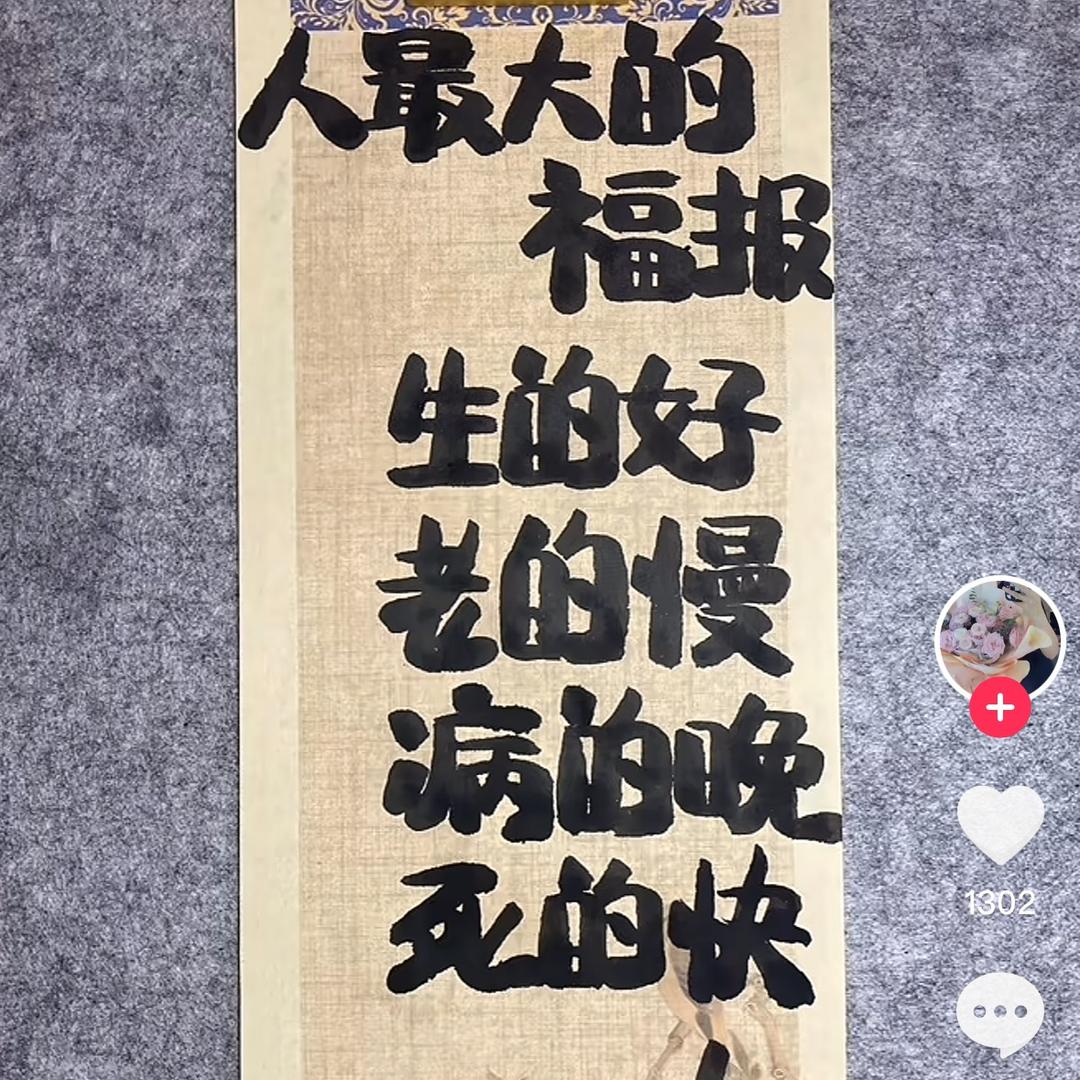 人最大的
福报
生的好
老的慢
病的晚
死的快
1302